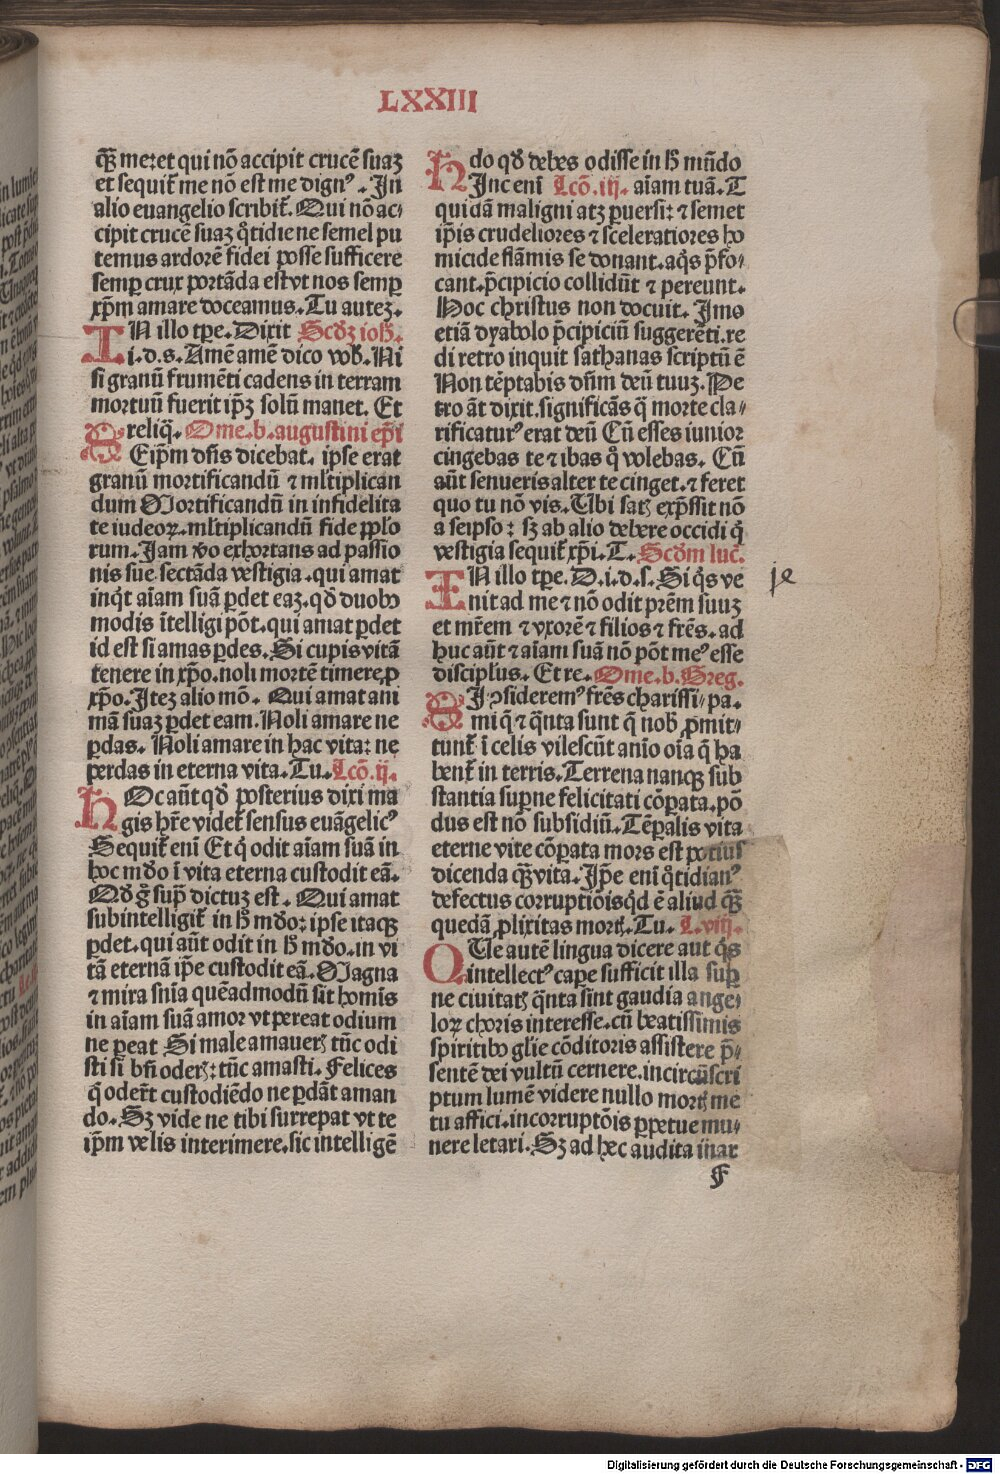 LXXIII
qꝫ̃ meret qui nõ accipit crucẽ suaꝫ
et sequit᷑ me nõ est me dignꝰ . In
alio euangelio scribit᷑. Qui nõ ac⸗
cipit crucẽ suaꝫ q̊tidie ne semel pu
temus ardorẽ fidei posse sufficere
semp̱ crux portãda est vt nos semp̱
xp̃m amare doceamus. Tu auteꝫ.
IN illo tp̃e. Dixit Scd̃ꝫ ioh̃.
i. d. s. Amẽ amẽ dico vob̃. Ni
si granũ frumẽti cadens in terram
mortuũ fuerit ip̃ꝫ solũ manet. Et
reliq̃. Ome. b. augustini ep̃i
SEip̃m dñs dicebat. ipse erat
granũ mortificandũ ⁊ ml̃tiplican
dum Mortificandũ in infidelita
te iudeoꝝ. ml̃tiplicandũ fide pp̃lo
rum. Jam ꝟo exhortans ad passio
nis sue sectãda vestigia . qui amat
inq̇t aĩam suã ꝑdet eaꝫ. qđ duobꝰ
modis ĩtelligi põt. qui amat ꝑdet
id est si amas ꝑdes. Si cupis vitã
tenere in xp̃o. noli mortẽ timere ꝓ
xp̃o. Iteꝫ alio mõ. Qui amat ani
mã suaꝫ ꝑdet eam. Noli amare ne
ꝑdas. Noli amare in hac vita: ne
perdas in eterna vita. Tu. Lcõ. ij.
HOc aũt qđ posterius dixi ma
gis hr̃e videt᷑ sensus euãgelicꝰ
Sequit᷑ enĩ Et q̇ odit aĩam suã in
hoc mđo ĩ vita eterna custodit eã.
Qđ g̊ sup̱ dictuꝫ est . Qui amat
subintelligit᷑ in h̃ mđo: ipse itaqꝫ
ꝑdet. qui aũt odit in h̃ mđo. in vi
tã eternã ip̃e custodit eã. Magna
⁊ mira sñia quẽadmodũ sit homĩs
in aĩam suã amor vt pereat odium
ne ꝑeat Si male amaueꝭ tũc odi
sti si bñ oderꝭ: tũc amasti. Felices
q̇ oder̃t custodiẽdo ne ꝑdãt aman
do. Sꝫ vide ne tibi surrepat vt te
ip̃m velis interimere. sic intelligẽ
do qđ debes odisse in h̃ mũdo
HInc enĩ Lcõ. iij. aĩam tuã. T
quidã maligni atꝫ ꝑuersi: ⁊ semet
ip̃is crudeliores ⁊ sceleratiores ho
micide flãmis se donant. aq̇s p̃fo⸗
cant. p̃cipicio collidũt ⁊ pereunt.
Hoc christus non docuit. Imo
etiã dyabolo p̃cipiciũ suggerẽti. re
di retro inquit sathanas scriptũ ẽ
Non tẽptabis dñm deũ tuuꝫ. Pe
tro ãt dixit. significãs q̃ morte cla⸗
rificaturꝰ erat deũ Cũ esses iunior
cingebas te ⁊ ibas q̊ volebas. Cũ
aũt senueris alter te cinget. ⁊ feret
quo tu nõ vis. Ubi satꝭ exp̃ssit nõ
a seipso: sꝫ ab alio debere occidi q̇
vestigia sequit᷑ xp̃i. T. Scđm luc̃.
IN illo tp̃e. D. i. d. s. Si q̇s ve
nit ad me ⁊ nõ odit pr̃em suuꝫ
et mr̃em ⁊ vxorẽ ⁊ filios ⁊ fr̃es. ad
huc aũt ⁊ aĩam suã nõ põt meꝰ esse
discipl̃us. Et re. Ome. b. Greg.
SI ꝯsideremꝰ fr̃es chariss̃i. pa.
mi q̃ ⁊ q̃nta sunt q̃ nob̃ ꝓmit⸗
tunt᷑ ĩ celis vilescũt anĩo oĩa q̃ ha
bent᷑ in terris. Terrena nanqꝫ sub
stantia suꝑne felicitati cõꝑata. põ
dus est nõ subsidiũ. Tẽꝑalis vita
eterne vite cõꝑata mors est potius
dicenda qꝫ̃ vita. Ip̃e enĩ q̊tidianꝰ
defectus corruptiõis qđ ẽ aliud qꝫ̃
quedã ꝓlixitas mortꝭ. Tu. L. viij.
QUe autẽ lingua dicere aut q̇s
intellectꝰ caꝑe sufficit illa suꝑ
ne ciuitatꝭ q̃nta sint gaudia ange⸗
loꝝ choris interesse. cũ beatissimis
spiritibꝰ gl̃ie cõditoris assistere p̃⸗
sentẽ dei vultũ cernere. incircũscri
ptum lumẽ videre nullo mortꝭ me
tu affici. incorruptõis ꝑpetue mu⸗
nere letari. Sꝫ ad hec audita inar
je
F
Digitalisierung gefördert durch die Deutsche Forschungsgemeinschaft - DFG